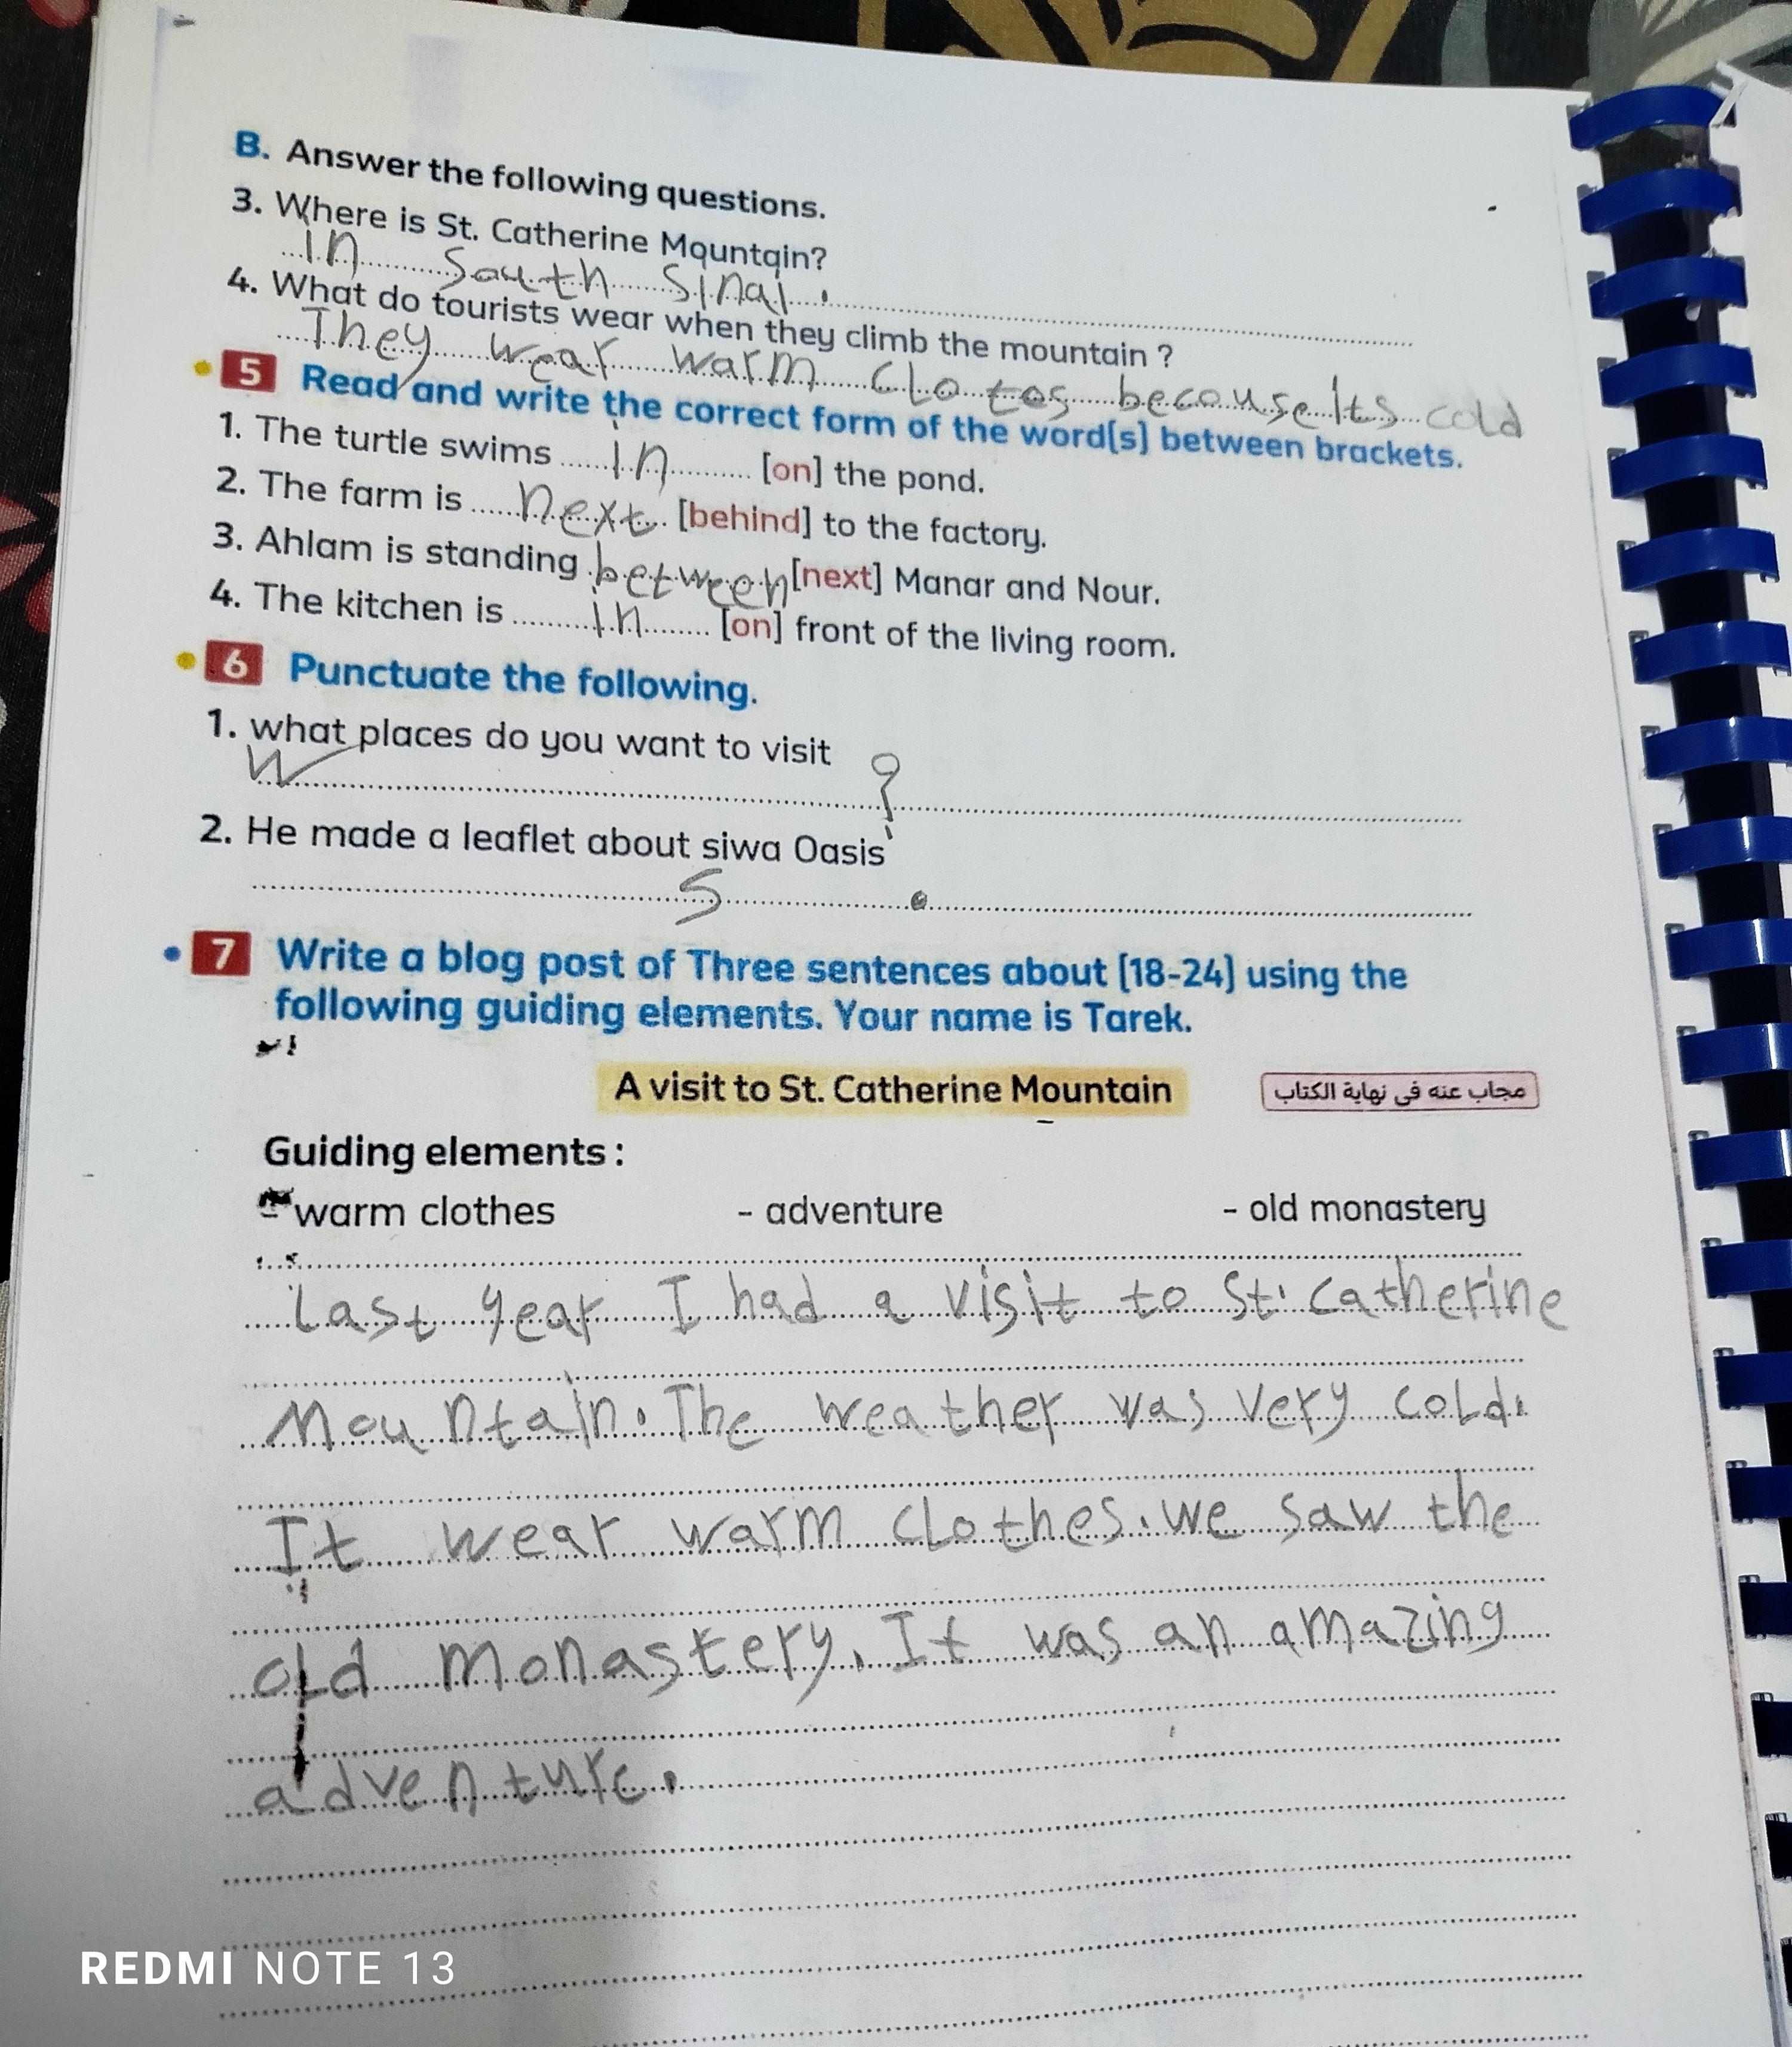 B. Answer the following questions.
3. Where is St. Catherine Mountain?
in south sinai.
4. What do tourists wear when they climb the mountain ?
They wear warm clotes becouse Its cold
5 Read and write the correct form of the word(s) between brackets.
1. The turtle swims in [on] the pond.
2. The farm is next [behind] to the factory.
3. Ahlam is standing between [next] Manar and Nour.
4. The kitchen is in [on] front of the living room.
6 Punctuate the following.
1. what places do you want to visit
W ?
2. He made a leaflet about siwa Oasis
S .
7 Write a blog post of Three sentences about [18-24] using the
following guiding elements. Your name is Tarek.
A visit to St. Catherine Mountain مجاب عنه فى نهاية الكتاب
Guiding elements :
- warm clothes - adventure - old monastery
Last year I had a visit to St. Catherine
Mountain. The weather was very cold.
It wear warm clothes. we saw the
old monastery. It was an amazing
adventure.
REDMI NOTE 13